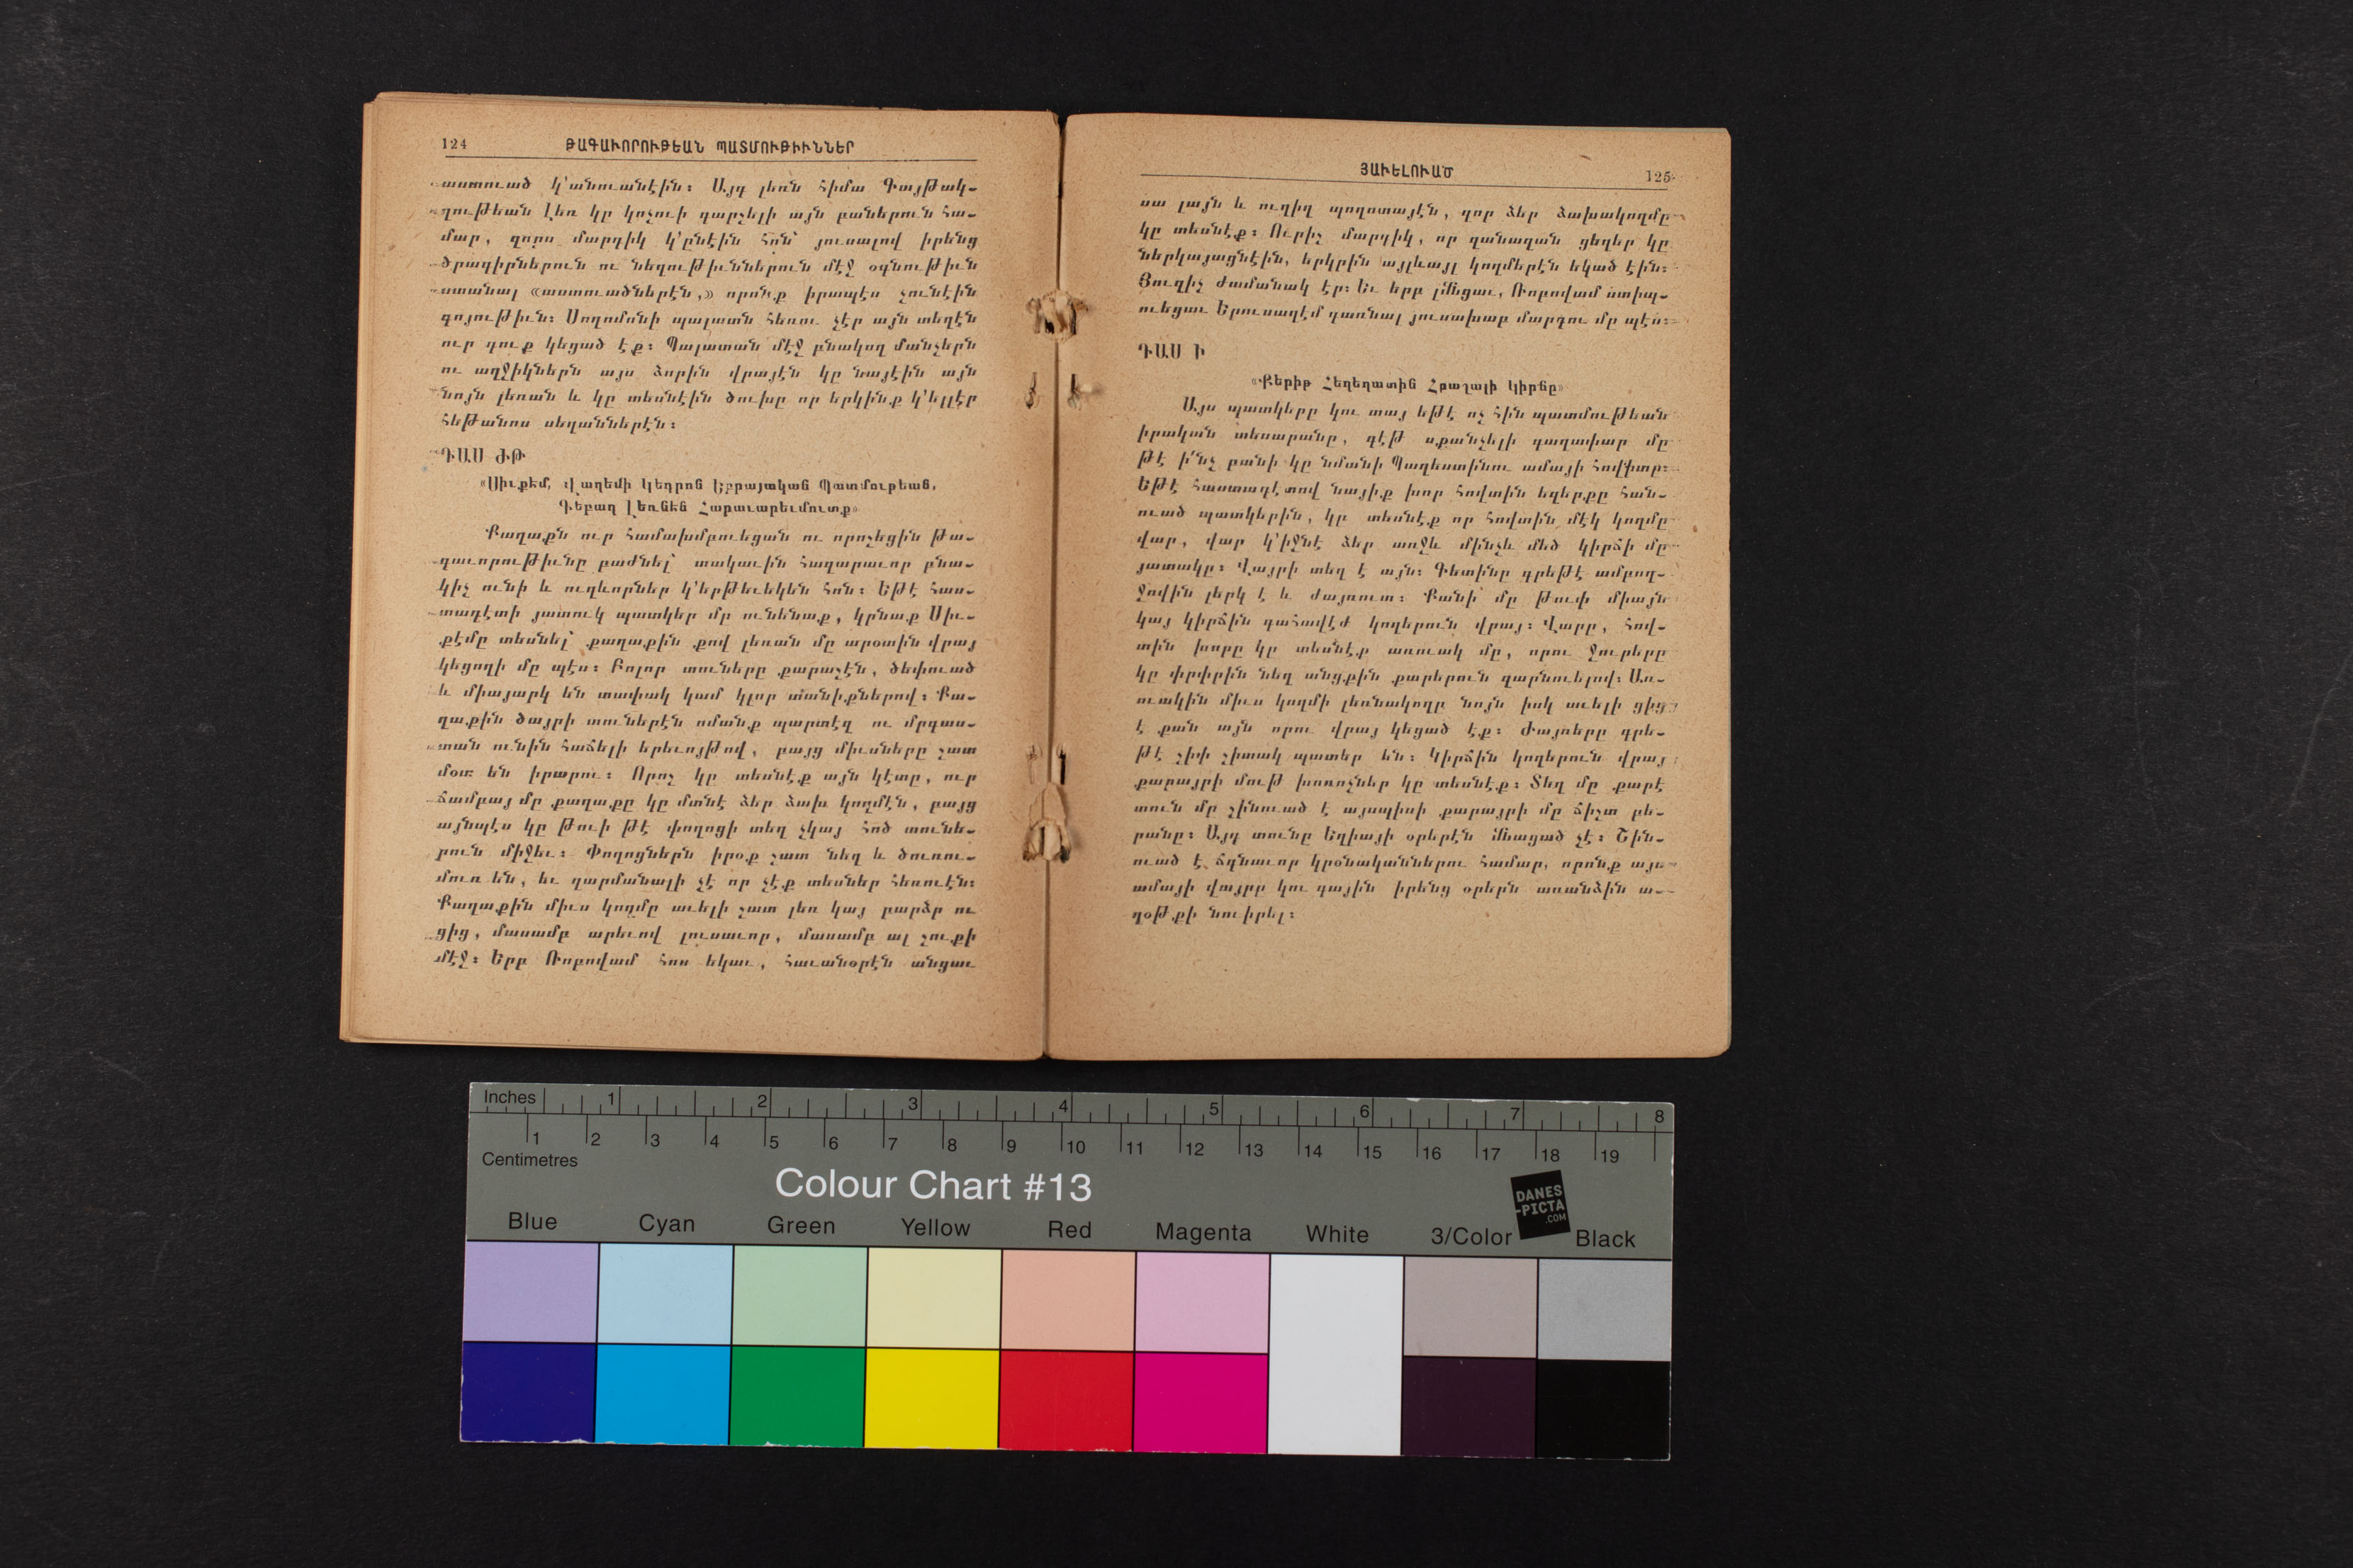 124 ԹԱԳԱՒՈՐՈՒԹԵԱՆ ՊԱՏՄՈՒԹԻՒՆՆԵՐ
աստուած կ՚անուանէին։ Այդ լեռն հիմա Գայթակ-
ղութեան Լեռ կը կոչուի գարշելի այն բաներուն հա-
մար, զորս մարդիկ կ՚ընէին հոն՝ յուսալով իրենց
ծրագիրներուն ու նեղութիւններուն մէջ օգնութիւն
ստանալ «աստուածներէն,» որոնք իրապէս չունէին
գոյութիւն։ Սողոմոնի պալատն հեռու չէր այն տեղէն
ուր դուք կեցած էք։ Պալատան մէջ բնակող մանչերն
ու աղջիկներն այս ձորին վրայէն կը նայէին այն
նոյն լեռան և կը տեսնէին ծուխը որ երկինք կ՚ելլէր
հեթանոս սեղաններէն։
ԴԱՍ ԺԹ
«Սիւքեմ, Վաղեմի Կեդրոն Եբրայական Պատմութեան,
Գեբաղ Լեռնէն Հարաւարեւմուտք»
Քաղաքն ուր համախմբուեցան ու որոշեցին թա-
գաւորութիւնը բաժնել՝ տակաւին հազարաւոր բնա-
կիչ ունի և ուղևորներ կ՚երթեւեկեն հոն։ Եթէ հաս-
տադէտի յատուկ պատկեր մը ունենաք, կրնաք Սիւ-
քէմը տեսնել՝ քաղաքին քով լեռան մը արօտին վրայ
կեցողի մը պէս։ Բոլոր տուները քարաշէն, ծեփուած
և միայարկ են տափակ կամ կլոր տանիքներով։ Քա-
ղաքին ծայրի տուներէն ոմանք պարտէզ ու մրգաս-
տան ունին հաճելի երեւոյթով, բայց միւսները շատ
մօտ են իրարու։ Որոշ կը տեսնէք այն կէտը, ուր
ճամբայ մը քաղաքը կը մտնէ ձեր ձախ կողմէն, բայց
այնպէս կը թուի թէ փողոցի տեղ չկայ հոծ տունե-
րուն միջեւ։ Փողոցներն իրօք շատ նեղ և ծուռու-
մուռ են, եւ զարմանալի չէ որ չէք տեսներ հեռուէն։
Քաղաքին միւս կողմը աւելի շատ լեռ կայ բարձր ու
ցից, մասամբ արեւով լուսաւոր, մասամբ ալ շուքի
մէջ։ Երբ Ռոբովամ հոս եկաւ, հաւանօրէն անցաւ
ՅԱՒԵԼՈՒԱԾ 125
սա լայն և ուղիղ պողոտայէն, զոր ձեր ձախակողմը
կը տեսնէք։ Ուրիշ մարդիկ, որ զանազան ցեղեր կը
ներկայացնէին, երկրին այլևայլ կողմերէն եկած էին։
Յուզիչ ժամանակ էր։ Եւ երբ լմնցաւ, Ռոբովամ ստիպ-
ուեցաւ Երուսաղէմ դառնալ յուսախաբ մարդու մը պէս։
ԴԱՍ Ի
«Քերիթ Հեղեղատին Հրաշալի Կիրճը»
Այս պատկերը կու տայ եթէ ոչ հին պատմութեան
իրական տեսարանը, գէթ սքանչելի գաղափար մը
թէ ի՛նչ բանի կը նմանի Պաղեստինու ամայի հովիտը։
Եթէ հաստադէտով նայիք խոր հովտին եզերքը հան-
ուած պատկերին, կը տեսնէք որ հովտին մէկ կողմը
վար, վար կ՚իջնէ ձեր առջև մինչև մեծ կիրճի մը
յատակը։ Վայրի տեղ է այն։ Գետինը գրեթէ ամբող-
ջովին լերկ է և ժայռուտ։ Քանի մը թուփ միայն
կայ կիրճին գահավէժ կողերուն վրայ։ Վարը, հով-
տին խորը կը տեսնէք առուակ մը, որու ջուրերը
կը փրփրին նեղ անցքին քարերուն զարնուելով։ Առ-
ուակին միւս կողմի լեռնակողը նոյն իսկ աւելի ցից
է քան այն որու վրայ կեցած էք։ Ժայռերը գրե-
թէ շիփ շիտակ պատեր են։ Կիրճին կողերուն վրայ
քարայրի մութ խոռոչներ կը տեսնէք։ Տեղ մը քարէ
տուն մը շինուած է այսպիսի քարայրի մը ճիշտ բե-
րանը։ Այդ տունը Եղիայի օրերէն մնացած չէ։ Շին-
ուած է ճգնաւոր կրօնականներու համար, որոնք այս
ամայի վայրը կու գային իրենց օրերն առանձին ա-
ղօթքի նուիրել։
Inches 1 2 3 4 5 6 7 8
1 2 3 4 5 6 7 8 9 10 11 12 13 14 15 16 17 18 19
Centimetres
Colour Chart #13
DANES
-PICTA
.COM
Blue Cyan Green Yellow Red Magenta White 3/Color Black